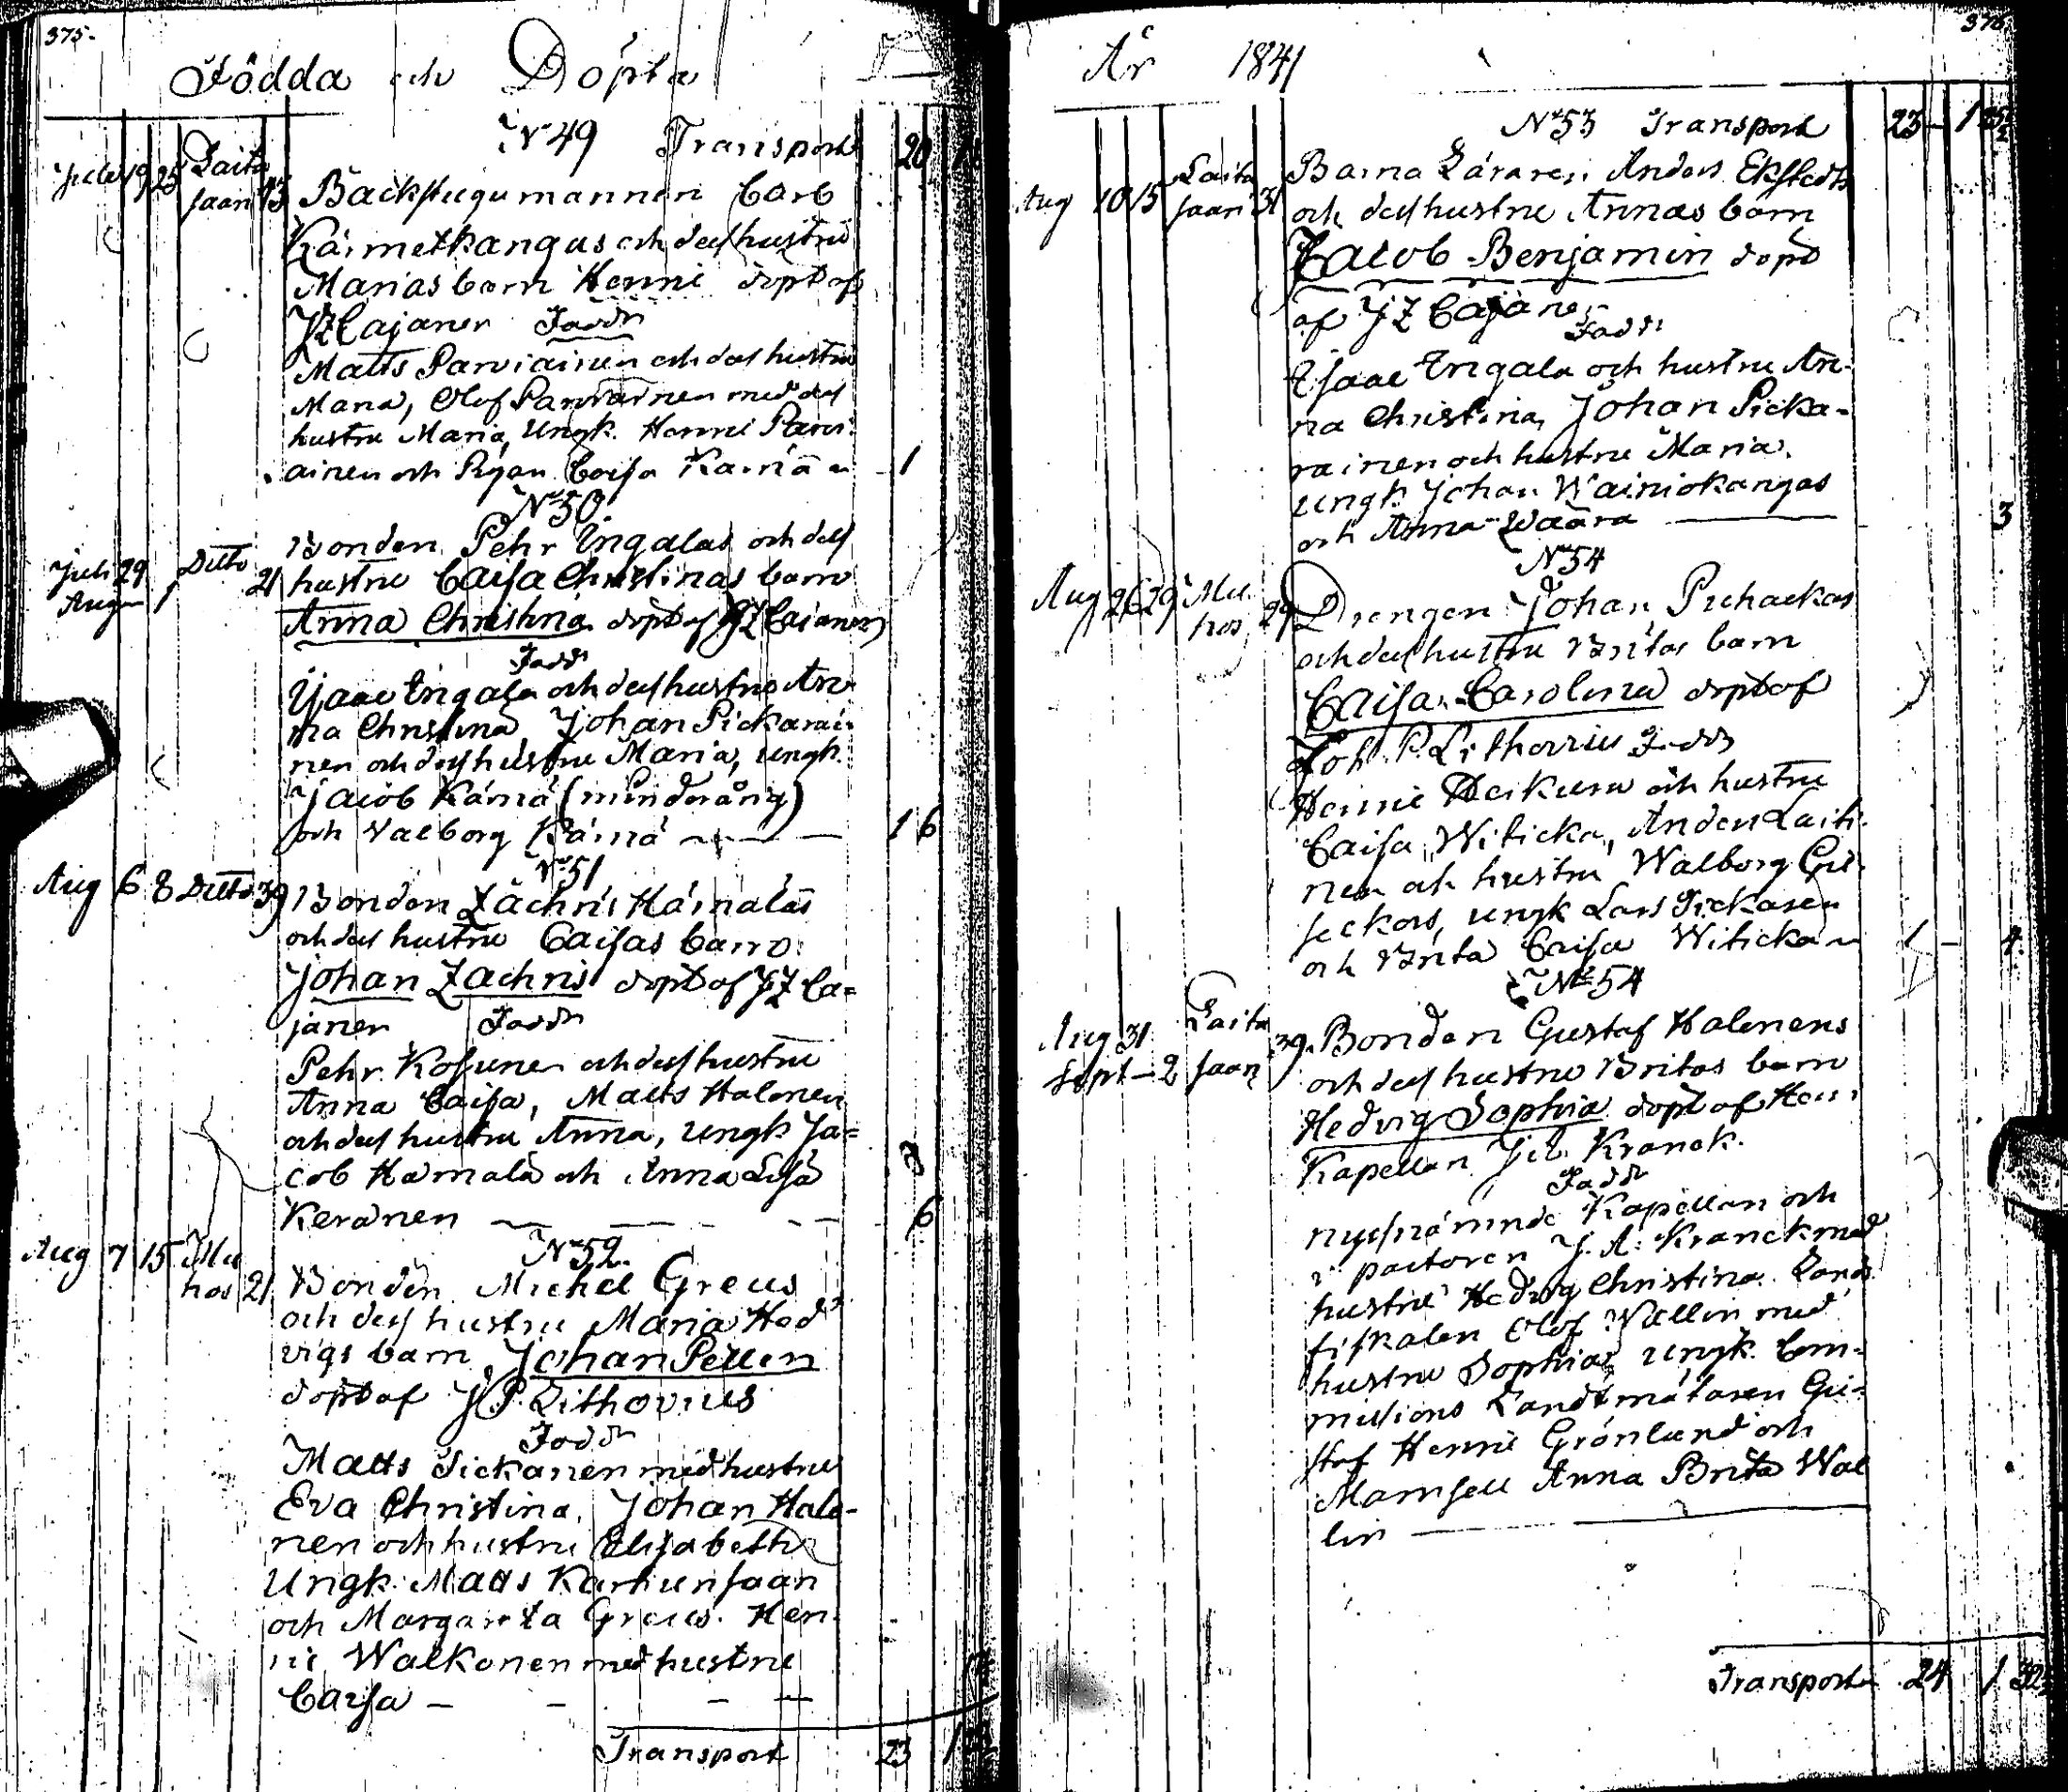 375.
Födda och Döpta
No 49 Transport 20
Julii 19 25 Laita
saari 43 Backstugumannen Carl
Kärmetkangas och dess hustru
Marias barn Henric döpt af
JZ Cajaner Faddr
Matts Parviainen och dess hustru
Maria, Olof Parviainen med dess
hustru Maria, Ungk. Henric Parvi-
ainen och Pigan Caisa Kärnä 1
No 50
Bonden Pehr Ingalas och dess
Juli 29 Ditto 21 hustru Caisa Christinas barn
Aug 1 Anna Christina döpt af JZ Cajaner
Faddr
Isaac Ingala och dess hustru An-
na Christina, Johan Pickarai-
nen och dess hustru Maria, ungk.
Jacob Kärnä (minderårig)
och Valborg Kärnä 1 6
No 51
Aug 6 8 Ditto 39 Bonden Zachris Härnäläs
och dess hustru Caisas barn
Johan Zachris döpt af JZ Ca=
janer Faddr
Pehr Kosunen och dess hustru
Anna Caisa, Matts Halonen
och dess hustru Anna, ungk Ja=
cob Hamala och Anna Lisa
Keränen 6
No 52.
Aug 7 15 Mu
hos 21 Bonden Michel Greus
och dess hustru Maria Hed
vigs barn Johan Pellen
döpt af J P. Lithovius
Faddr
Matts Sickanen med hustru
Eva Christina, Johan Halo-
nen och hustru Elisabeth
Ungk. Matts Karhunsaari
och Margareta Greus. Hen-
ric Walkonen med hustru
Caisa
Transport 23
376
År 1841
No 53 Transport 23 1
Aug 10 15 Laita
saari 31 Barna Läraren Anders Ekstedts
och dess hustru Annas barn
Jacob Benjamin döpt
af JZ Cajaner
Faddr
Isaac Ingala och hustru An-
na Christina, Johan Picka-
rainen och hustru Maria.
Ungk Johan Wainiokangas
och Anna Waara 3
No 54
Aug 26 29 Mu
hos 29 Drengen Johan Puhackas
och dess hustru Britas barn
Caisa Carolina döpt af
Joh. P. Lithovius Faddr
Henric Heikura och hustru
Caisa Witicka, Anders Laiti-
nen och hustru Walborg
ungk Lars Sickanen
och Brita Caisa Witicka 1 4
No 54
Aug 31 Laita 39. Bonden Gustaf Halonens
Sept 2 saari och dess hustru Britas barn
Hedvig Sophia döpt af Herr
Kapellan J A. Kranck.
Faddr
nyssnämnde Kapellan och
v. pastoren J. A. Kranck med
hustru Hedvig Christina. Lands
fiskalen Olof Wallin med
hustru Sophia, Ungk. Com-
missions Landtmätaren Gu-
staf Henric Grönlund och
Mamsell Anna Brita Wal
lin
Transport 24 1 32